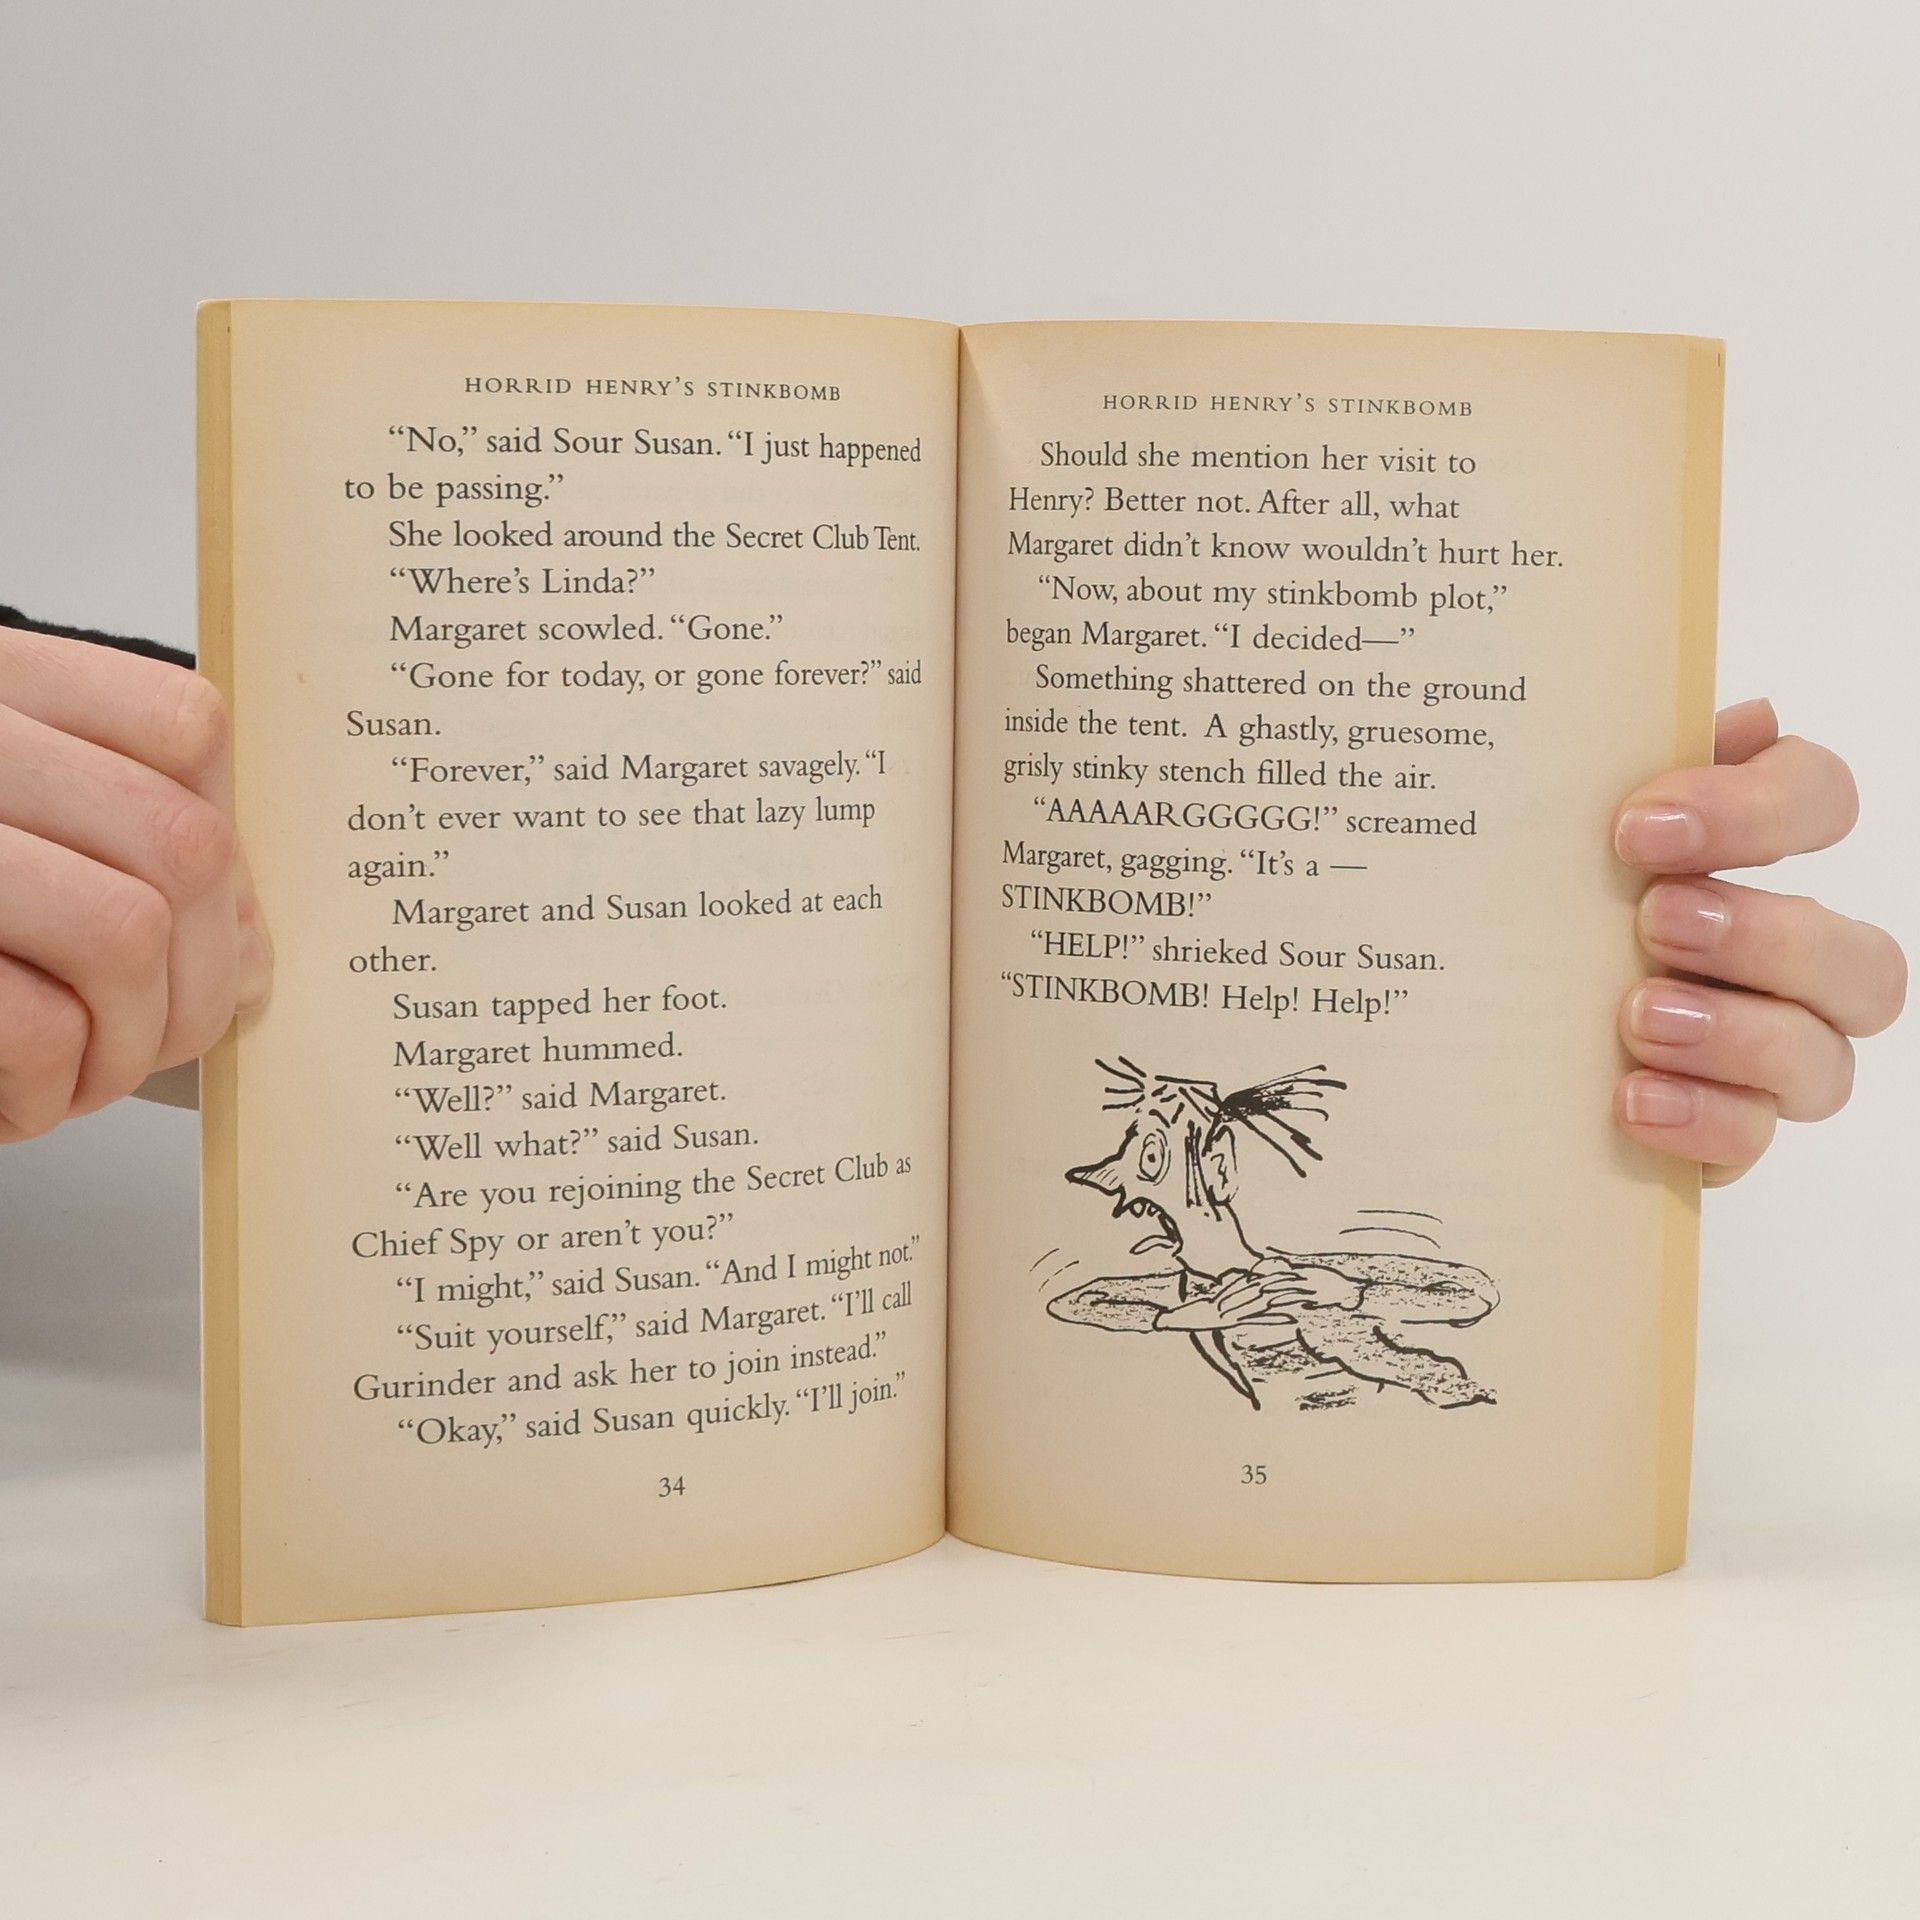 HORRID HENRY’S STINKBOMB
“No,” said Sour Susan. “I just happened
to be passing.”
She looked around the Secret Club Tent.
“Where’s Linda?”
Margaret scowled. “Gone.”
“Gone for today, or gone forever?” said
Susan.
“Forever,” said Margaret savagely. “I
don’t ever want to see that lazy lump
again.”
Margaret and Susan looked at each
other.
Susan tapped her foot.
Margaret hummed.
“Well?” said Margaret.
“Well what?” said Susan.
“Are you rejoining the Secret Club as
Chief Spy or aren’t you?”
“I might,” said Susan. “And I might not.”
“Suit yourself,” said Margaret. “I’ll call
Gurinder and ask her to join instead.”
“Okay,” said Susan quickly. “I’ll join.”
34
HORRID HENRY’S STINKBOMB
Should she mention her visit to
Henry? Better not. After all, what
Margaret didn’t know wouldn’t hurt her.
“Now, about my stinkbomb plot,”
began Margaret. “I decided—”
Something shattered on the ground
inside the tent. A ghastly, gruesome,
grisly stinky stench filled the air.
“AAAAARGGGGG!” screamed
Margaret, gagging. “It’s a —
STINKBOMB!”
“HELP!” shrieked Sour Susan.
“STINKBOMB! Help! Help!”
35